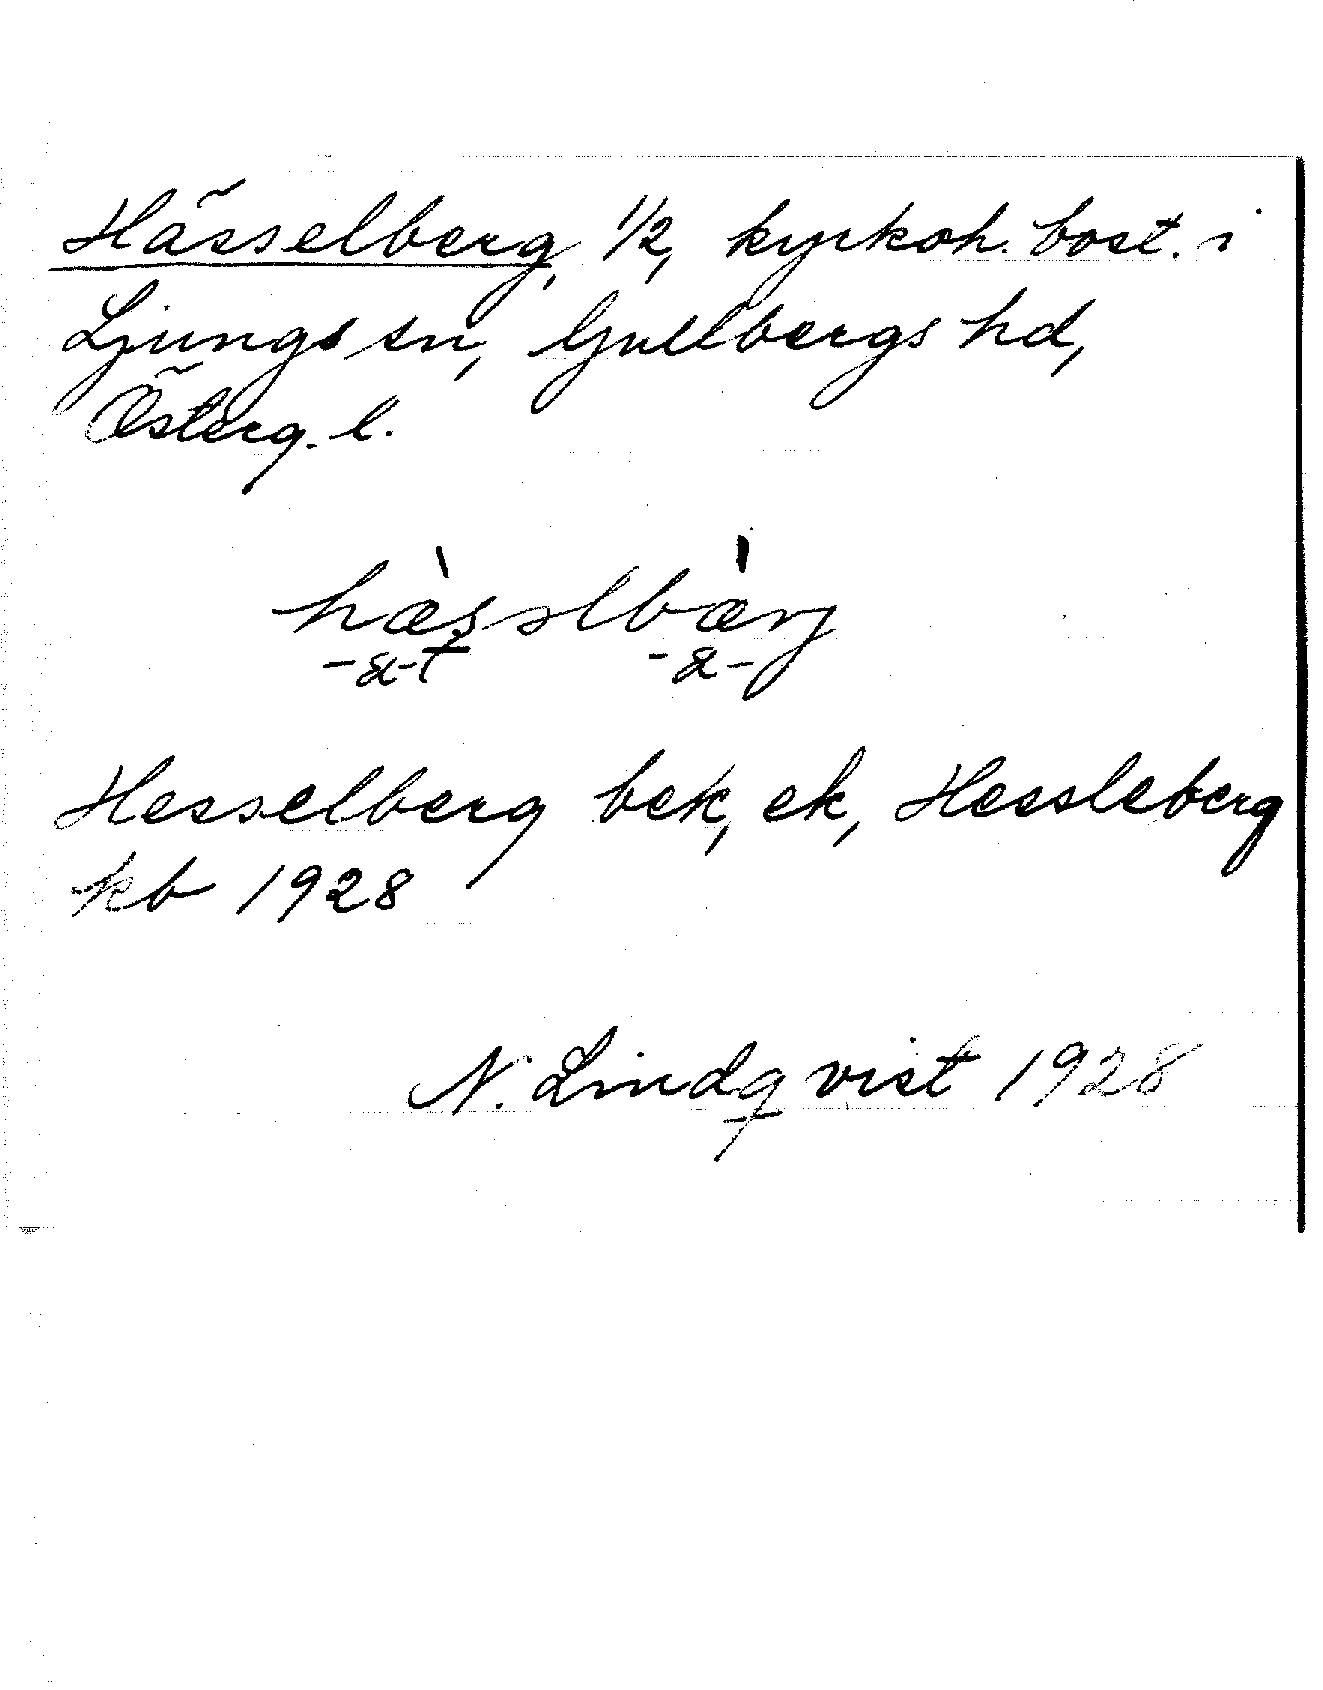 Hässelberg, 1/2, kyrkoh. bost. i
Ljungs sn, Gullbergs hd,
Österg. l.
hæ̀sslbæ̀rj
-a-t -a-
Hesselberg bek, ek, Hessleberg
kb 1928
N. Lindqvist 1928